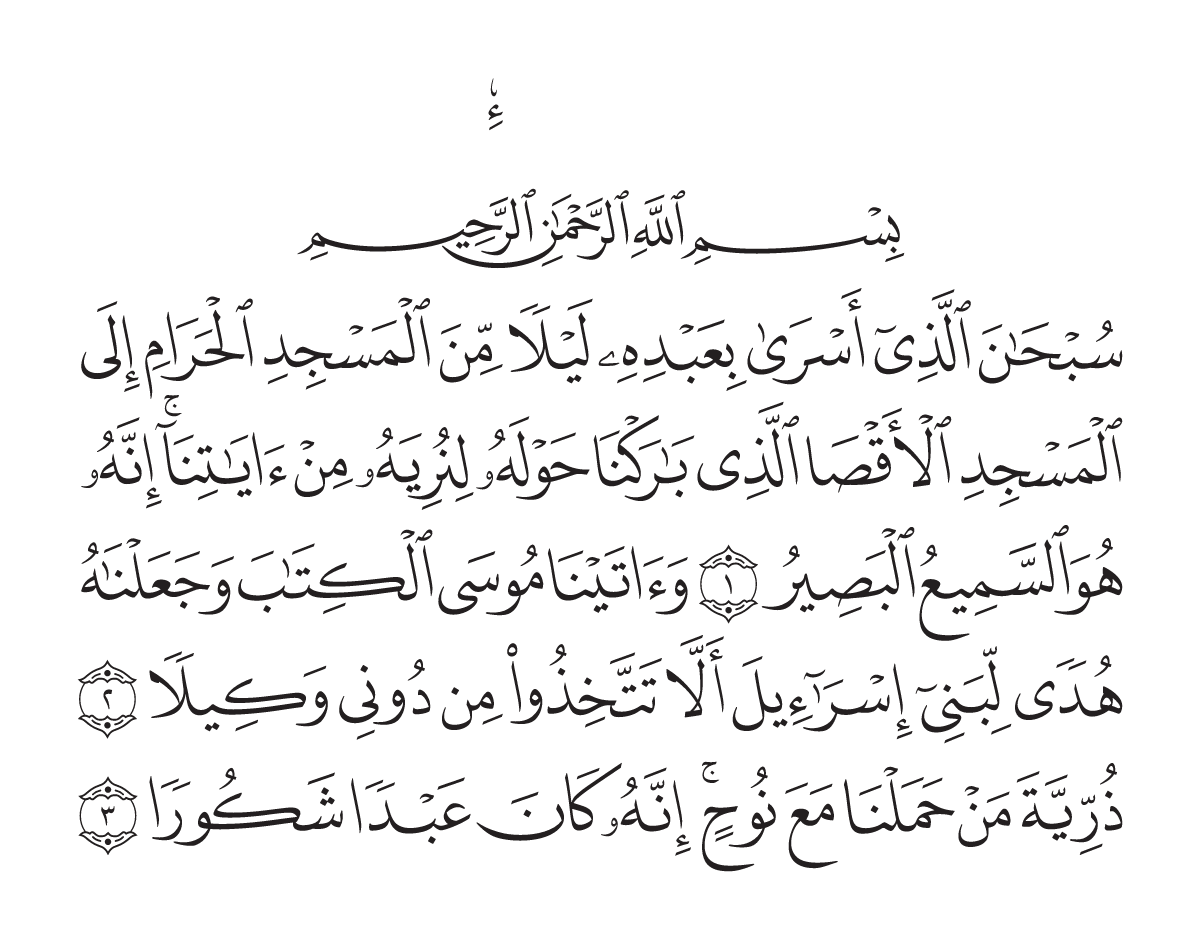 بِسْمِ ٱللَّهِ ٱلرَّحْمَٰنِ ٱلرَّحِيمِ
سُبْحَٰنَ ٱلَّذِىٓ أَسْرَىٰ بِعَبْدِهِۦ لَيْلًا مِّنَ ٱلْمَسْجِدِ ٱلْحَرَامِ إِلَى
ٱلْمَسْجِدِ ٱلْأَقْصَا ٱلَّذِى بَٰرَكْنَا حَوْلَهُۥ لِنُرِيَهُۥ مِنْ ءَايَٰتِنَآ ۚ إِنَّهُۥ
هُوَ ٱلسَّمِيعُ ٱلْبَصِيرُ ١ وَءَاتَيْنَا مُوسَى ٱلْكِتَٰبَ وَجَعَلْنَٰهُ
هُدًى لِّبَنِىٓ إِسْرَٰٓءِيلَ أَلَّا تَتَّخِذُوا۟ مِن دُونِى وَكِيلًا ٢
ذُرِّيَّةَ مَنْ حَمَلْنَا مَعَ نُوحٍ ۚ إِنَّهُۥ كَانَ عَبْدًا شَكُورًا ٣